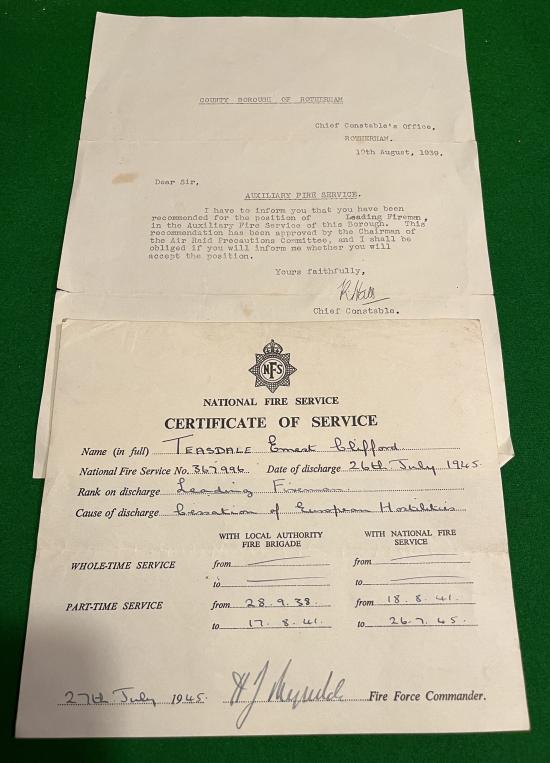 COUNTY BOROUGH OF ROTHERHAM
Chief Constable's Office,
ROTHERHAM.
19th August, 1939.
Dear Sir,
AUXILIARY FIRE SERVICE.
I have to inform you that you have been
recommended for the position of Leading Fireman,
in the Auxiliary Fire Service of this Borough. This
recommendation has been approved by the Chairman of
the Air Raid Precautions Committee, and I shall be
obliged if you will inform me whether you will
accept the position.
Yours faithfully,
R. Hall
Chief Constable.
NFS
NATIONAL FIRE SERVICE
CERTIFICATE OF SERVICE
Name (in full) TEASDALE Ernest Clifford
National Fire Service No. 367996 Date of discharge 26th July 1945.
Rank on discharge Leading Fireman
Cause of discharge Cessation of European Hostilities
WITH LOCAL AUTHORITY WITH NATIONAL FIRE
FIRE BRIGADE SERVICE
WHOLE-TIME SERVICE from from
to to
PART-TIME SERVICE from 28.9.38. from 18.8.41.
to 17.8.41. to 26.7.45.
27th July 1945. H J Reynolds Fire Force Commander.